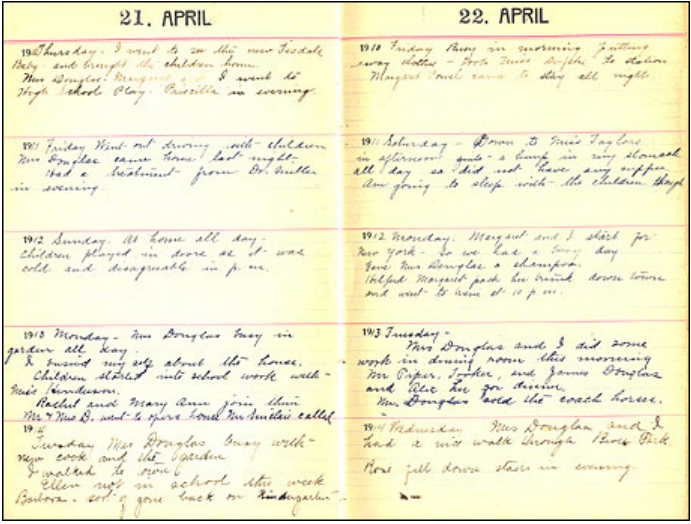 21. APRIL
1910 Thursday. I went to see the new Tisdale
Baby - and brought the children home.
Mrs Douglas - Margaret and I went to
High School Play - Priscilla in evening.
1911 Friday Went out driving with children
Mrs Douglas came home last night -
Had a treatment from Dr.
in evening.
1912 Sunday. At home all day.
Children played in doors as it was
cold and disagreeable in p.m.
1913 Monday - Mrs Douglas busy in
garden all day.
I busied my self about the house.
Children started into school work with
Miss
Rachel and Mary Ann join them
Mr & Mrs D. went to opera house Mrs Sinclair called
1914
Tuesday Mrs Douglas busy with
new cook and the garden
I walked to town
Ellen not in school this week
Barbara - sort of gone back on Kindergarten
22. APRIL
1910 Friday Busy in morning putting
away clothes - took Miss to station
Margaret came to stay all night
1911 Saturday - Down to Miss Taylors
in afternoon - a lump in my stomach
all day so I did not have any supper
Am going to sleep with the children though
1912 Monday. Margaret and I start for
New York - so we had a busy day
Gave Mrs Douglas a shampoo.
Helped Margaret pack her trunk down town
and went to train at 10 p.m.
1913 Tuesday -
Mrs Douglas and I did some
work in dining room this morning
Mr Piper, Tooker, and James Douglas
and here for dinner.
Mr. Douglas sold the coach horse.
1914 Wednesday Mrs Douglas and I
had a nice walk through Park
Rose fell down stairs in evening.